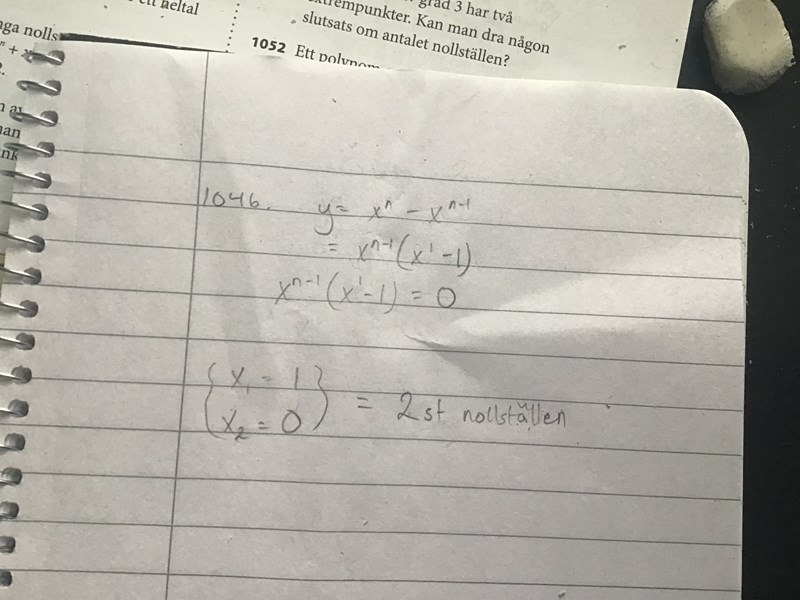 heltal
grad 3 har två
extrempunkter. Kan man dra någon
slutsats om antalet nollställen?
1052 Ett polynom
nga nolls
1046. y = xⁿ − xⁿ⁻¹
= xⁿ⁻¹(x¹−1)
xⁿ⁻¹(x¹−1) = 0
{ x₁ = 1 }
{ x₂ = 0 } = 2 st nollställen